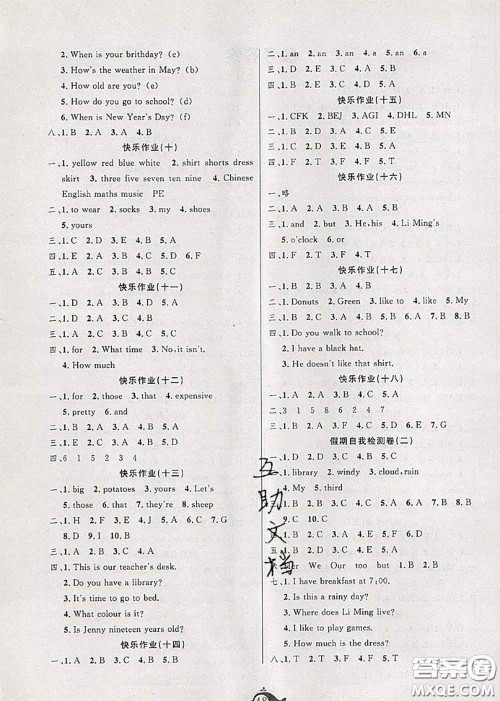 2. When is your brithday? (c)
3. How's the weather in May? (f)
4. How old are you? (e)
5. How do you go to school? (g)
6. When is New Year's Day? (b)
八、1. B 2. A 3. A 4. B
快乐作业(十)
一、1. yellow red blue white 2. shirt shorts dress
skirt 3. three five seven ten nine 4. Chinese
English maths music PE
二、1. to wear 2. socks 3. my 4. shoes
5. yours
三、1. C 2. D 3. E 4. B 5. A
四、1. E 2. A 3. B 4. C 5. D 6. F
五、1. A 2. C 3. B 4. B 5. A
快乐作业(十一)
一、1. C 2. D 3. B 4. B 5. D
二、1. B 2. B 3. C 4. B 5. A
三、1. D 2. C 3. A 4. B 5. E
四、1. for 2. What time 3. No, it isn't.
4. How much
快乐作业(十二)
一、1. for 2. those 3. that 4. expensive
5. pretty 6. and
二、1. D 2. A 3. B 4. D 5. A
三、1. B 2. D 3. A 4. E 5. C
四、6 1 5 2 3 4
快乐作业(十三)
一、1. big 2. potatoes 3. yours 4. Let's
5. those 6. that 7. they're 8. sheep
二、1. H 2. J 3. F 4. G 5. A 6. E 7. C
8. D 9. I 10. B
三、1. C 2. D 3. B 4. A 5. B
四、1. This is our teacher's desk.
2. Do you have a library?
3. It's time to go to bed.
4. What colour is it?
5. Is Jenny nineteen years old?
快乐作业(十四)
一、1. B 2. A 3. C 4. D 5. C
二、1. an 2. an 3. an 4. a 5. an
三、1. D 2. E 3. C 4. A 5. B
四、1. A 2. C 3. A 4. A 5. C
快乐作业(十五)
一、1. CFK 2. BEJ 3. AGI 4. DHL 5. MN
二、1. A 2. C 3. A 4. B 5. C
三、1. D 2. C 3. E 4. B 5. A
四、1. F 2. T 3. F 4. F 5. T
快乐作业(十六)
一、略
二、1. A 2. D 3. B 4. C 5. D
三、1. and 2. but 3. He, his 4. Li Ming's
5. o'clock 6. or
四、1. F 2. T 3. F 4. T
快乐作业(十七)
一、1. B 2. A 3. C 4. B 5. C
二、1. Donuts 2. Green 3. like 4. like 5. My
三、1. Do you walk to school?
2. I have a black hat.
3. He doesn't like that shirt.
快乐作业(十八)
一、1. C 2. A 3. B 4. B 5. A
二、2 3 1 5 8 6 4 7
假期自我检测卷(二)
一、1. B 2. D 3. B 4. C 5. C
二、1. library 2. windy 3. cloud, rain
4. My 5. third
1. B 2. A 3. C 4. B 5. C 6. C 7. B 8. C
9. C 10. C
五、1. B 2. A 3. B 4. C 5. D
We Our too but
七、1. I have breakfast at 7:00.
2. Is this a rainy day?
3. Where does Li Ming live?
4. I like to play games.
5. How much is the dress?
八、1. T 2. F 3. F 4. T 5. F
互助文档
答案圈
MXQE.COM